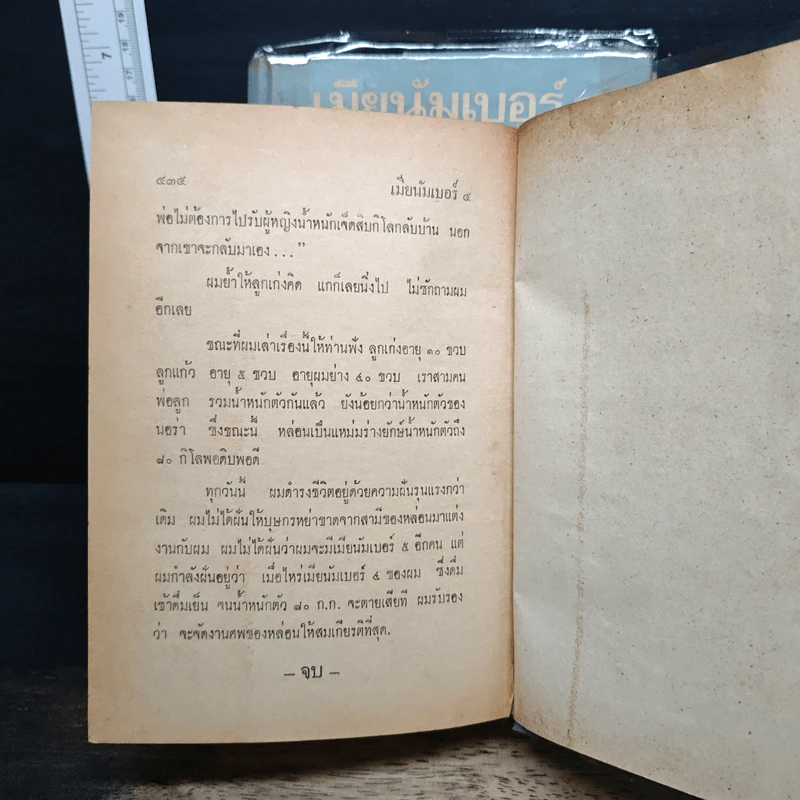 เมียนัมเบอร์
๕๓๕
เมียนัมเบอร์ ๔
พ่อไม่ต้องการไปรับผู้หญิงน้ำหนักเจ็ดสิบกิโลกลับบ้าน นอก
จากเขาจะกลับมาเอง . . .”
ผมย้ำให้ลูกเก่งคิด แกก็เลยนิ่งไป ไม่ซักถามผม
อีกเลย
ขณะที่ผมเล่าเรื่องนี้ให้ท่านฟัง ลูกเก่งอายุ ๑๐ ขวบ
ลูกแก้ว อายุ ๕ ขวบ อายุผมย่าง ๔๐ ขวบ เราสามคน
พ่อลูก รวมน้ำหนักตัวกันแล้ว ยังน้อยกว่าน้ำหนักตัวของ
นอร่า ซึ่งขณะนี้ หล่อนเป็นแหม่มร่างยักษ์น้ำหนักตัวถึง
๘๐ กิโลพอดิบพอดี
ทุกวันนี้ ผมดำรงชีวิตอยู่ด้วยความฝันรุนแรงกว่า
เดิม ผมไม่ได้ฝันให้บุษกรหย่าขาดจากสามีของหล่อนมาแต่ง
งานกับผม ผมไม่ได้ฝันว่าผมจะมีเมียนัมเบอร์ ๕ อีกคน แต่
ผมกำลังฝันอยู่ว่า เมื่อไหร่เมียนัมเบอร์ ๔ ของผม ซึ่งดื่ม
เช้าดื่มเย็น จนน้ำหนักตัว ๘๐ ก.ก. จะตายเสียที ผมรับรอง
ว่า จะจัดงานศพของหล่อนให้สมเกียรติที่สุด.
– จบ –
7
17
18
19